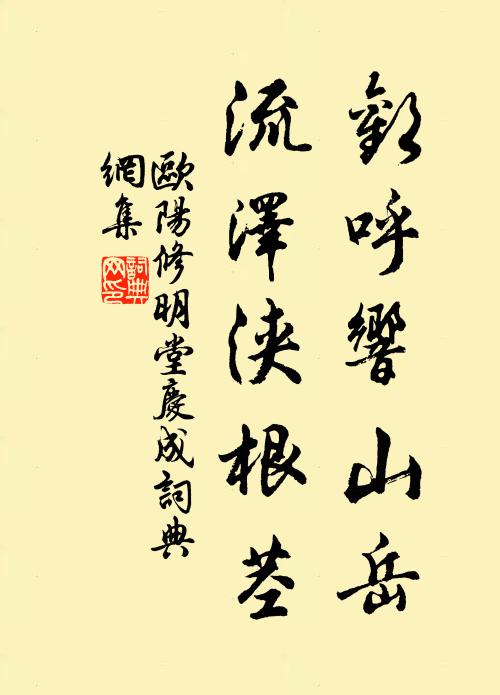 歡呼響山岳
流澤浹根莖
歐陽修明堂慶成詞典
網集
詞典
网印